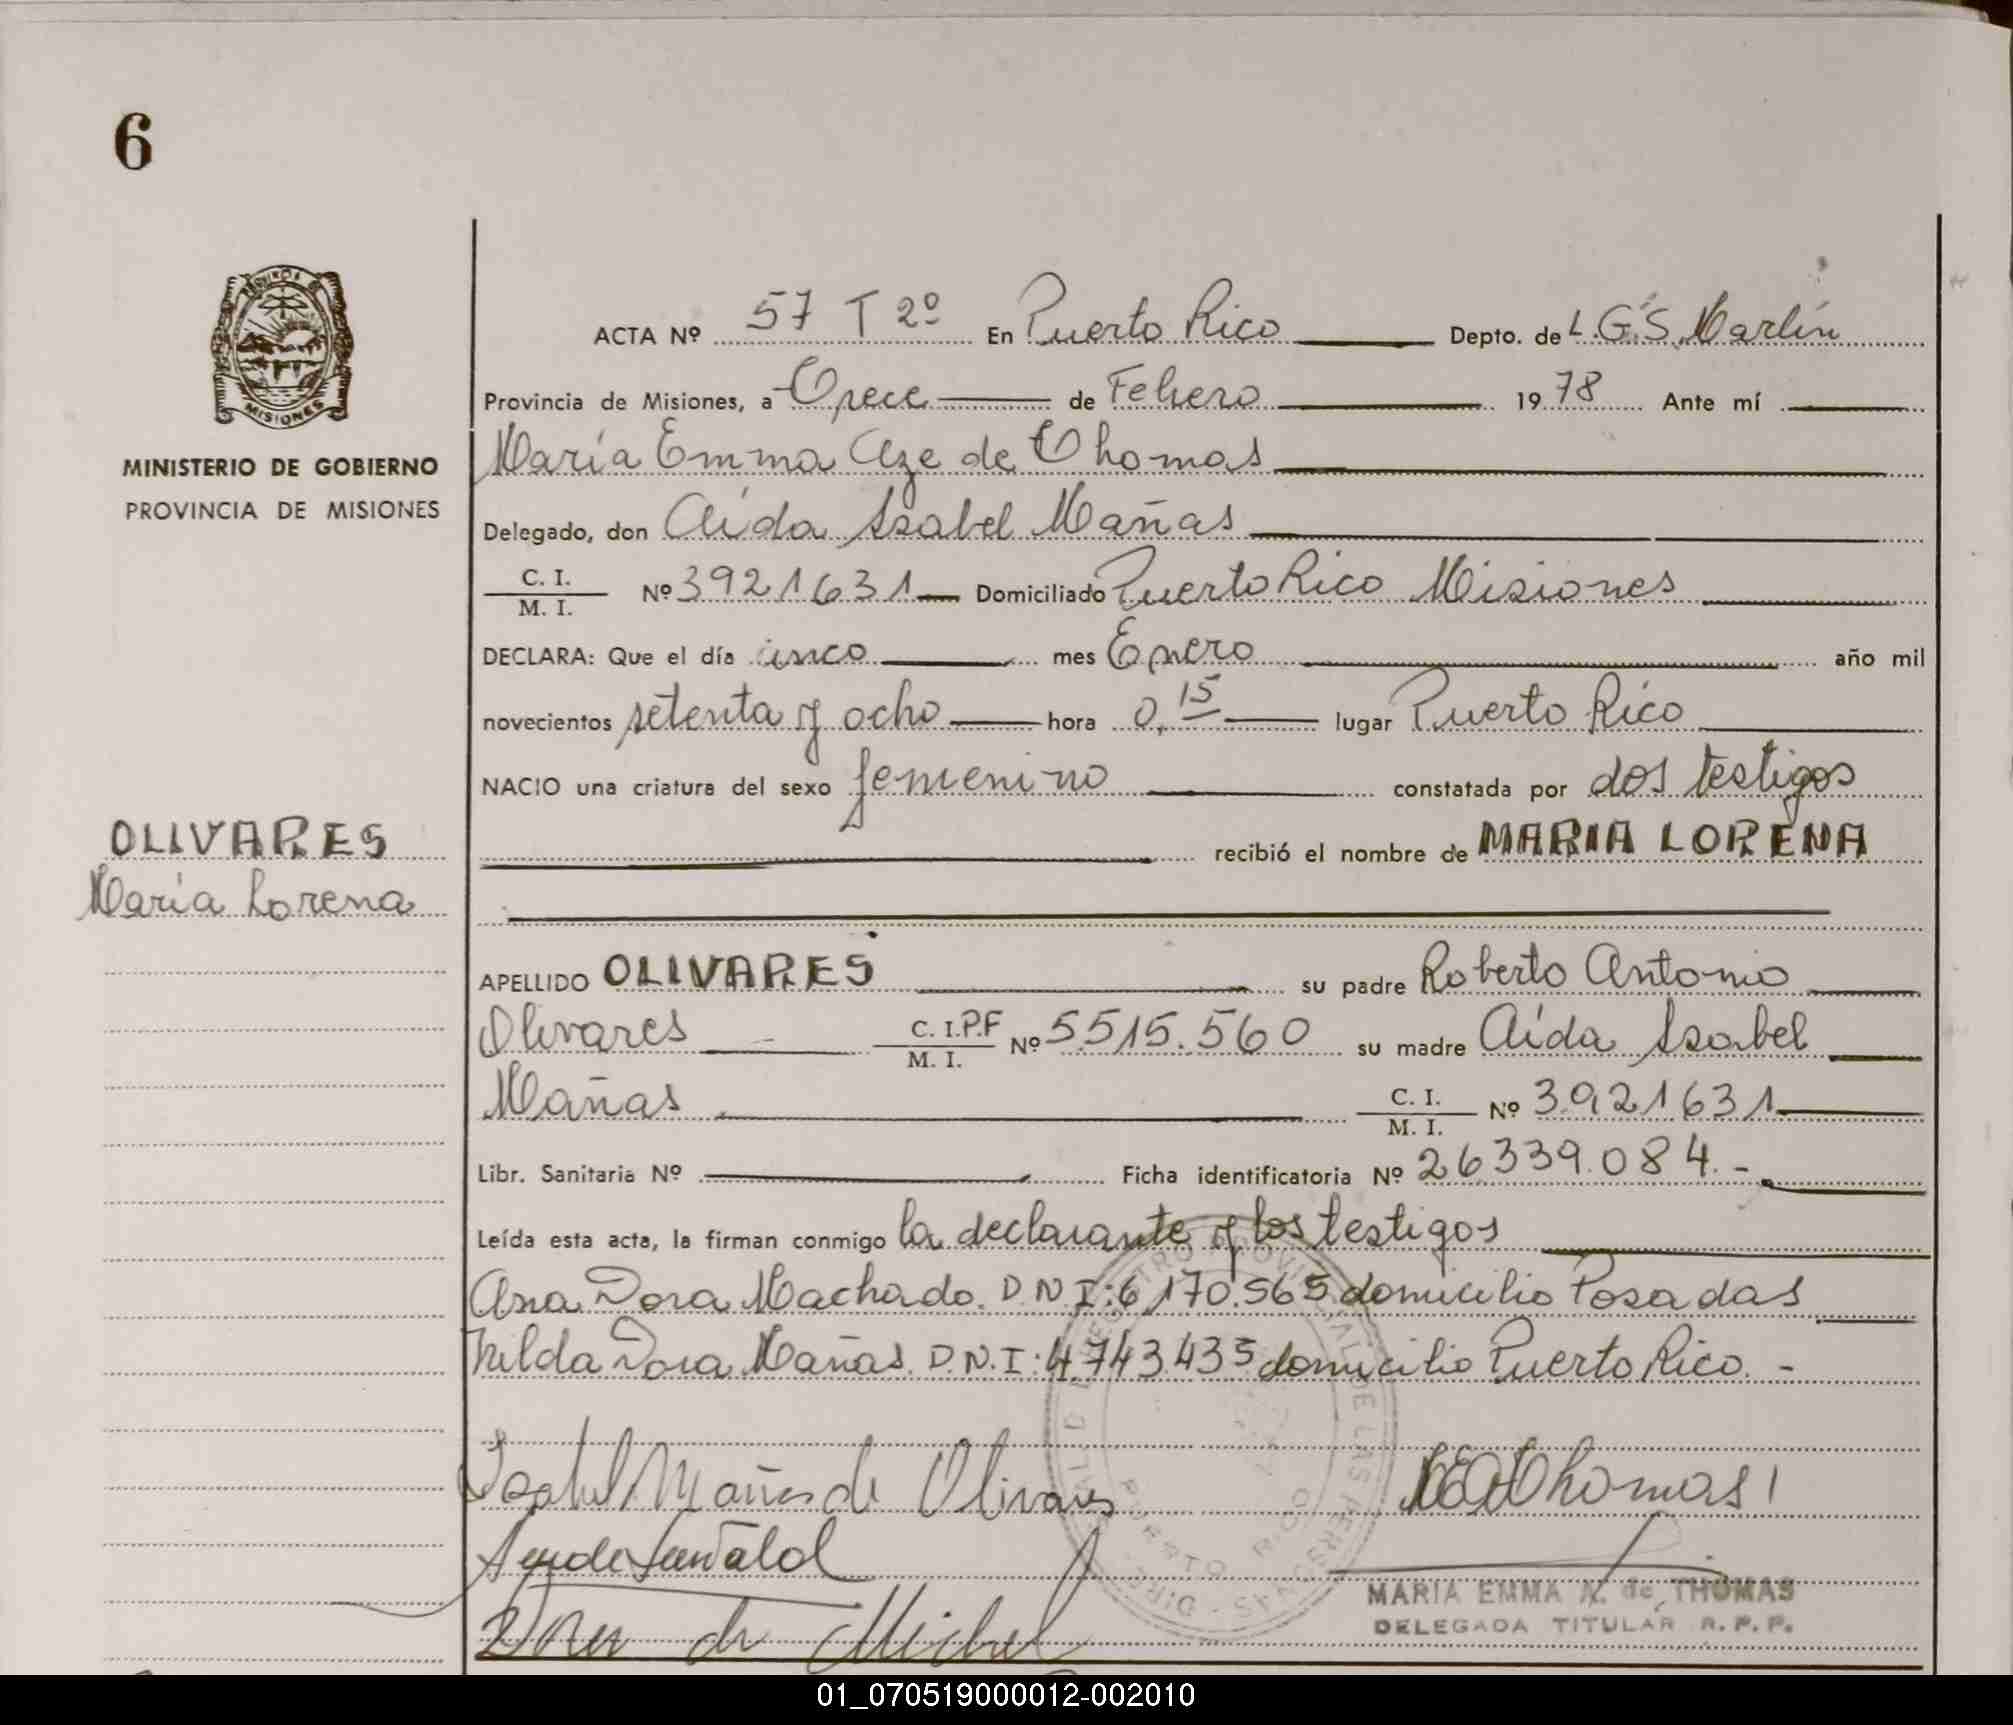 6
ACTA Nº 57 T 2º En Puerto Rico Depto. de L.G.S. Martín
Provincia de Misiones, a Trece de Febrero 1978 Ante mí
María Emma Aze de Thomas
MINISTERIO DE GOBIERNO
PROVINCIA DE MISIONES
Delegado, don Aída Isabel Mañas
C. I. M. I. Nº 3921631 Domiciliado Puerto Rico Misiones
DECLARA: Que el día cinco mes Enero año mil
novecientos setenta y ocho hora 0,15 lugar Puerto Rico
NACIO una criatura del sexo femenino constatada por dos testigos
recibió el nombre de MARIA LORENA
OLIVARES
María Lorena
APELLIDO OLIVARES su padre Roberto Antonio
Olivares C. I.P.F M. I. Nº 5515.560 su madre Aída Isabel
Mañas C. I. M. I. Nº 3921631
Libr. Sanitaria Nº Ficha identificatoria Nº 26339.084.-
Leída esta acta, la firman conmigo la declarante y los testigos
Ana Dora Machado. D.N.I:6170.565 domicilio Posadas
Nilda Dora Mañas. D.N.I:4.743.435 domicilio Puerto Rico.-
Isabel Mañas de Olivares
Thomas
MISIONES
PUERTO RICO
MARIA EMMA A. de THOMAS
DELEGADA TITULAR R. P. P.
de Michel
01_070519000012-002010